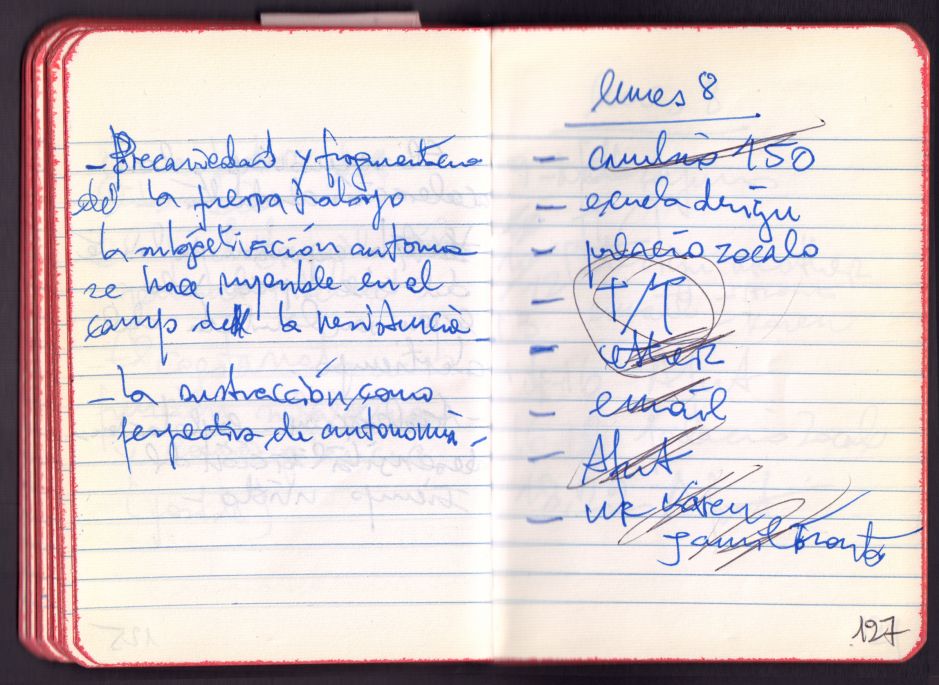 - Precariedad y fragmentación
del la fuerza trabajo
la subjetivación autonoma
se hace injenble en el
campo de la resistencia
- la sustracción, como
perspectiva de autonomia -
lunes 8
- cambio 150
- escuela design
- palacio zocalo
- T/T
-
- email
-
- Karen
Jamil
127